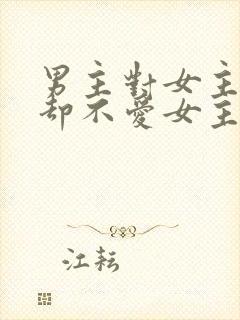 男主對女主
却不愛女主
江耘